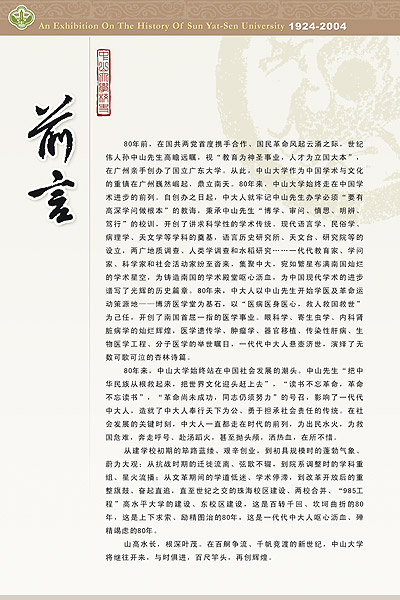 An Exhibition On The History Of Sun Yat-Sen University 1924-2004
前言
80年前，在国共两党首度携手合作、国民革命风起云涌之际，世纪
伟人孙中山先生高瞻远瞩，视“教育为神圣事业，人才为立国大本”，
在广州亲手创办了国立广东大学。从此，中山大学作为中国学术与文化
的重镇在广州巍然崛起，鼎立南天。80年来，中山大学始终走在中国学
术进步的前列。自创办之日起，中大人就牢记中山先生办学必须“要有
高深学问做根本”的教诲，秉承中山先生“博学、审问、慎思、明辨、
笃行”的校训，开创了讲求科学性的学术传统。现代语言学、民俗学、
病理学、天文学等学科的奠基，语言历史研究所、天文台、研究院等的
设立，两广地质调查、人类学调查和水稻研究⋯⋯一代代教育家、学问
家、科学家和社会活动家纷至沓来，集聚中大，宛如繁星布满南国灿烂
的学术星空，为铸造南国的学术殿堂呕心沥血，为中国现代学术的进步
谱写了光辉的历史篇章。80年来，中大人以中山先生开始学医及革命运
动策源地——博济医学堂为基石，以“医病医身医心，救人救国救世”
为己任，开创了南国首屈一指的医学事业。眼科学、寄生虫学、内科肾
脏病学的灿烂辉煌，医学遗传学、肿瘤学、器官移植、传染性肝病、生
物医学工程、分子医学的举世瞩目，一代代中大人悬壶济世，演绎了无
数可歌可泣的杏林诗篇。
80年来，中山大学始终站在中国社会发展的潮头。中山先生“把中
华民族从根救起来，把世界文化迎头赶上去”，“读书不忘革命，革命
不忘读书”，“革命尚未成功，同志仍须努力”的号召，影响了一代代
中大人，造就了中大人奉行天下为公、勇于担承社会责任的传统。在社
会发展的关键时刻，中大人一直都走在时代的前列，为出民水火，为救
国危难，奔走呼号、赴汤蹈火，甚至抛头颅，洒热血，在所不惜。
从建学校初期的筚路蓝缕、艰辛创业，到初具规模时的蓬勃气象、
蔚为大观；从抗战时期的迁徙流离、弦歌不辍，到院系调整时的学科重
组、星火流播；从文革期间的学道低迷、学术停滞，到改革开放后的重
整旗鼓、奋起直追，直至世纪之交的珠海校区建设、两校合并、“985工
程”高水平大学的建设、东校区建设，这是百转千回、坎坷曲折的80
年，这是上下求索、励精图治的80年，这是一代代中大人呕心沥血、殚
精竭虑的80年。
山高水长，根深叶茂。在百舸争流、千帆竞渡的新世纪，中山大学
将继往开来，与时俱进，百尺竿头，再创辉煌。